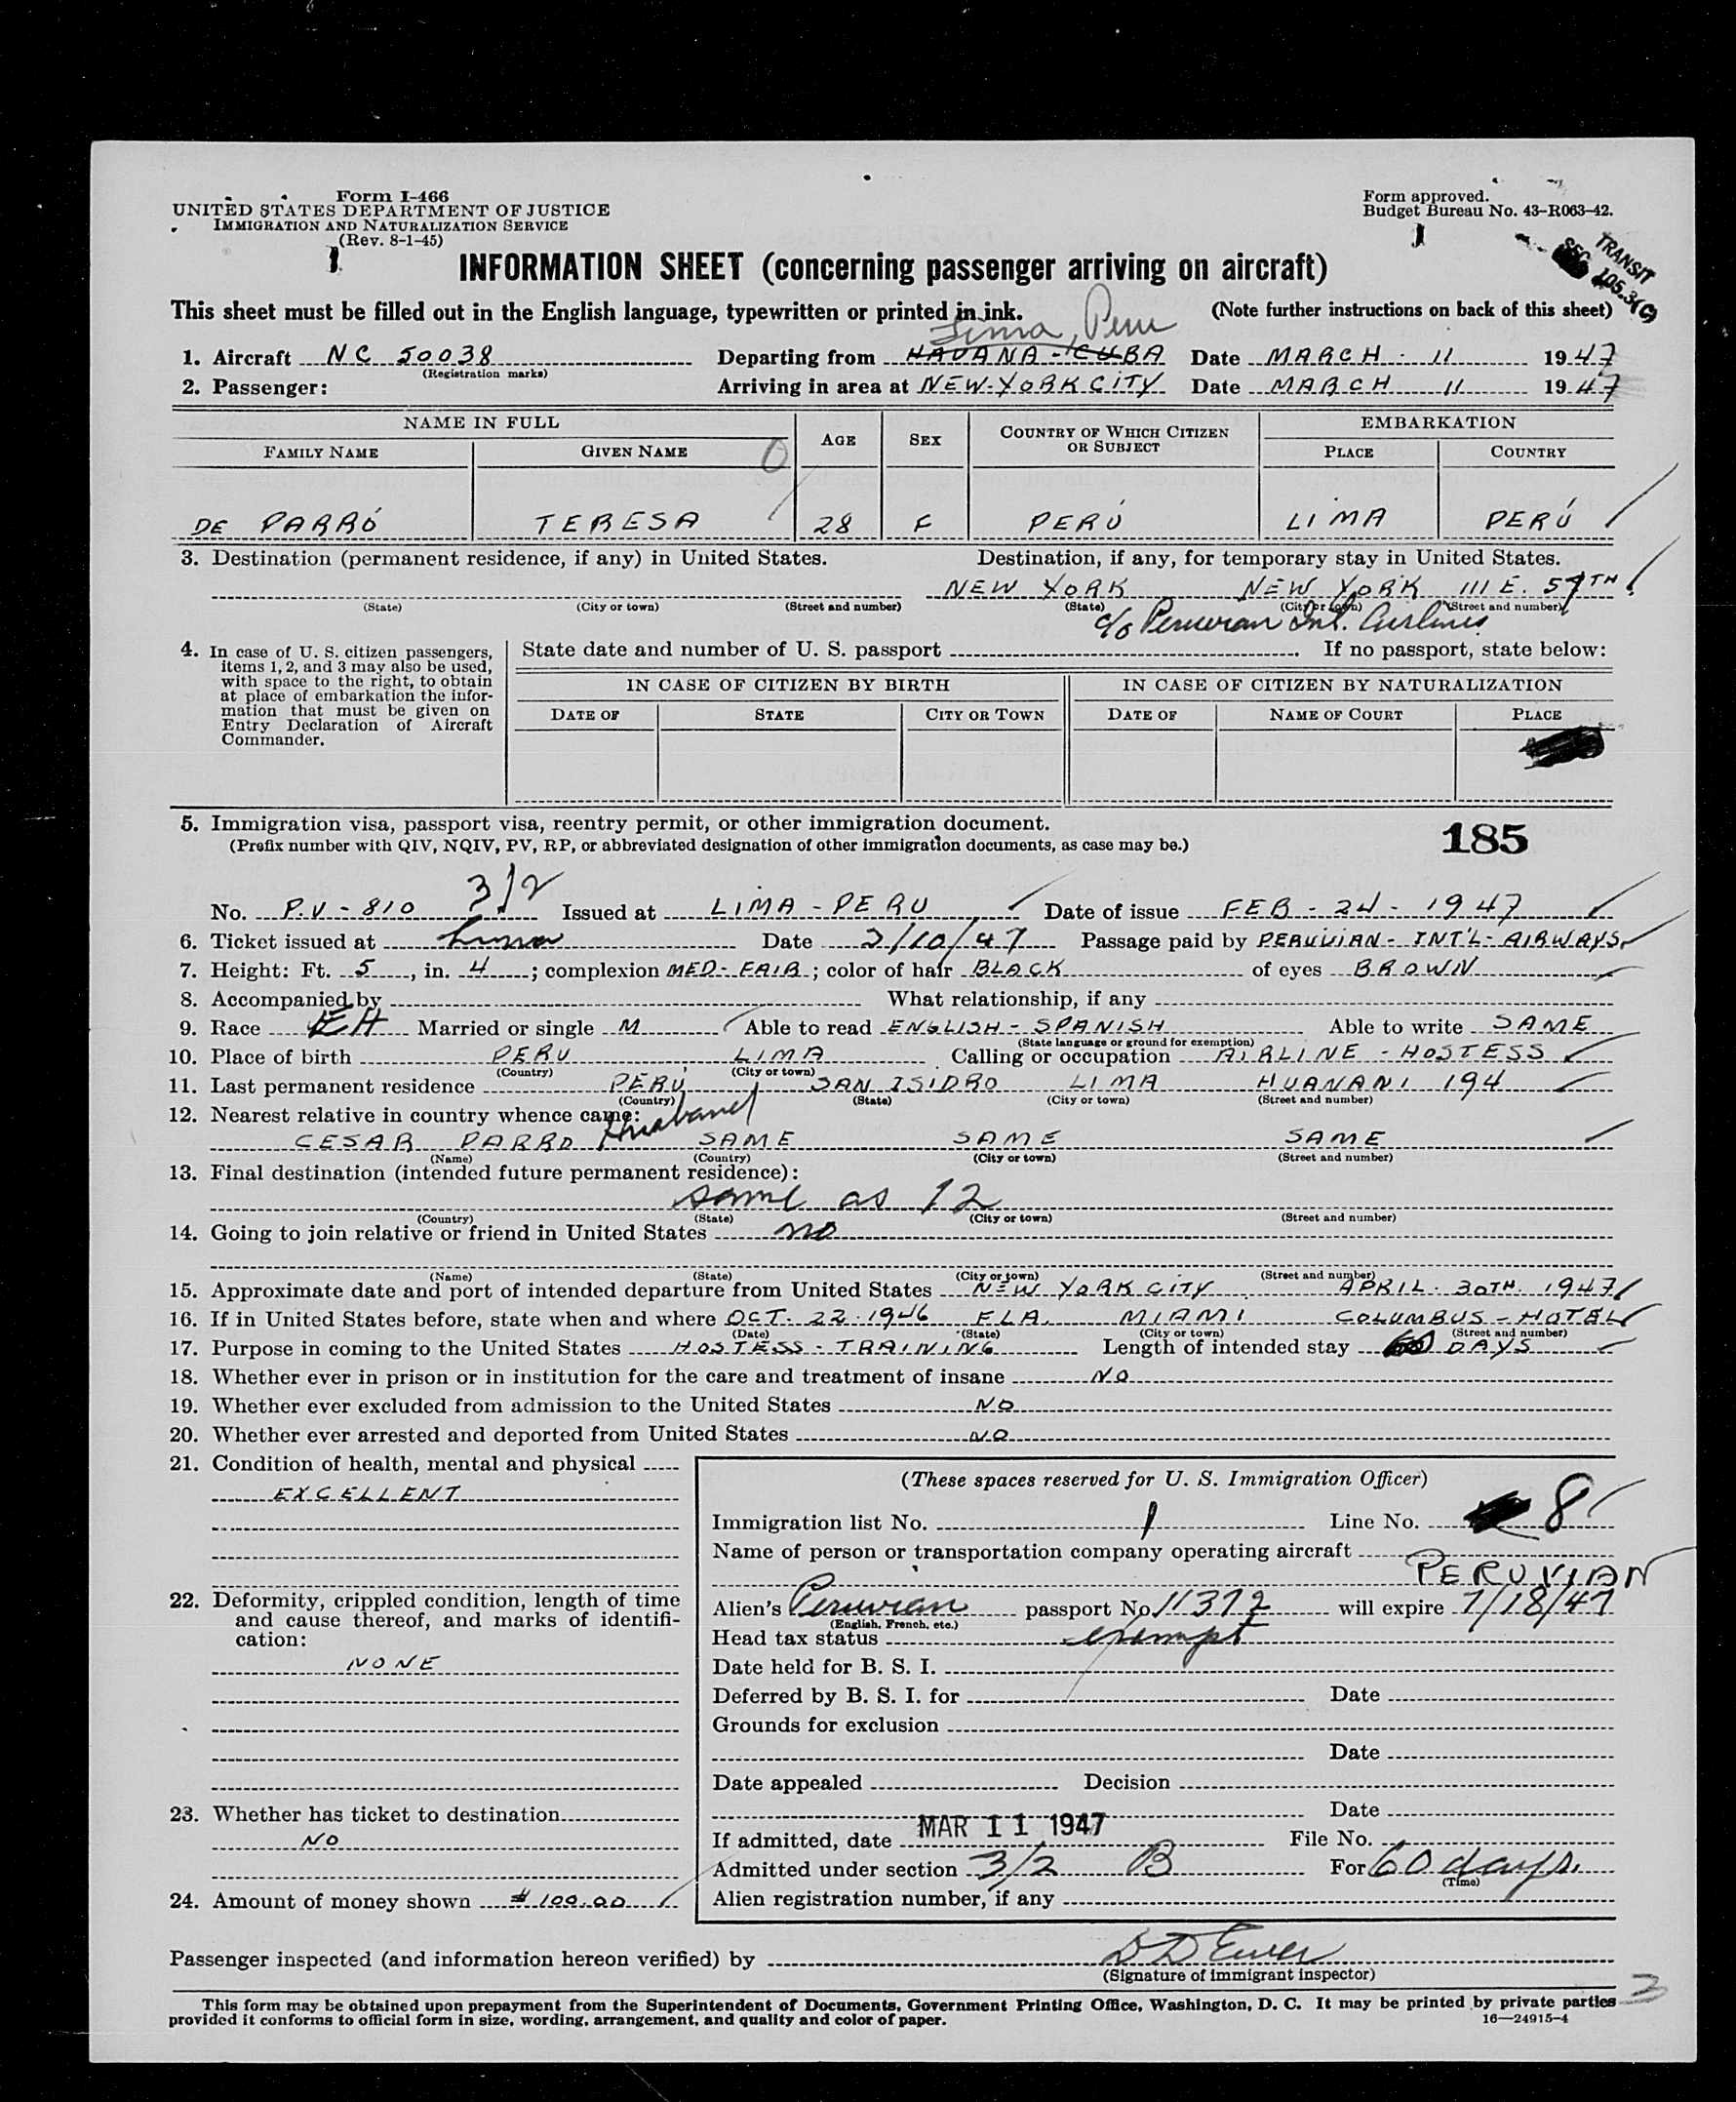 Form I-466
UNITED STATES DEPARTMENT OF JUSTICE
IMMIGRATION AND NATURALIZATION SERVICE
(Rev. 8-1-45)
Form approved.
Budget Bureau No. 43-R063-42.
TRANSIT
SEC 105.3(c)
INFORMATION SHEET (concerning passenger arriving on aircraft)
This sheet must be filled out in the English language, typewritten or printed in ink. (Note further instructions on back of this sheet)
Lima, Peru
1. Aircraft NC 50038 Departing from HAVANA - CUBA Date MARCH - 11 1947
(Registration marks)
2. Passenger: Arriving in area at NEW-YORK CITY Date MARCH 11 1947
NAME IN FULL AGE SEX COUNTRY OF WHICH CITIZEN OR SUBJECT EMBARKATION
FAMILY NAME GIVEN NAME PLACE COUNTRY
DE PARRÓ TERESA 28 F PERÚ LIMA PERÚ
3. Destination (permanent residence, if any) in United States. Destination, if any, for temporary stay in United States.
NEW YORK NEW YORK 111 E. 57TH
(State) (City or town) (Street and number) (State) (City or town) (Street and number)
c/o Peruvian Int. Airlines
4. In case of U. S. citizen passengers, items 1, 2, and 3 may also be used, with space to the right, to obtain at place of embarkation the information that must be given on Entry Declaration of Aircraft Commander.
State date and number of U. S. passport . If no passport, state below:
IN CASE OF CITIZEN BY BIRTH IN CASE OF CITIZEN BY NATURALIZATION
DATE OF STATE CITY OR TOWN DATE OF NAME OF COURT PLACE
5. Immigration visa, passport visa, reentry permit, or other immigration document.
(Prefix number with QIV, NQIV, PV, RP, or abbreviated designation of other immigration documents, as case may be.)
185
No. P.V - 810 3/2 Issued at LIMA - PERU Date of issue FEB - 24 - 1947
6. Ticket issued at Lima Date 3/10/47 Passage paid by PERUVIAN - INT'L - AIRWAYS
7. Height: Ft. 5, in. 4; complexion MED-FAIR; color of hair BLACK of eyes BROWN
8. Accompanied by What relationship, if any
9. Race Married or single M Able to read ENGLISH - SPANISH Able to write SAME
(State language or ground for exemption)
10. Place of birth PERU LIMA Calling or occupation AIRLINE - HOSTESS
(Country) (City or town)
11. Last permanent residence PERÚ SAN ISIDRO LIMA HUANANI 194
(Country) (State) (City or town) (Street and number)
12. Nearest relative in country whence came:
CESAR PARRO Husband SAME SAME SAME
(Name) (Country) (City or town) (Street and number)
13. Final destination (intended future permanent residence):
same as 12
(Country) (State) (City or town) (Street and number)
14. Going to join relative or friend in United States no
(Name) (State) (City or town) (Street and number)
15. Approximate date and port of intended departure from United States NEW YORK CITY APRIL 30TH. 1947
16. If in United States before, state when and where OCT - 22 - 1946 FLA. MIAMI COLUMBUS - HOTEL
(Date) (State) (City or town) (Street and number)
17. Purpose in coming to the United States HOSTESS - TRAINING Length of intended stay 60 DAYS
18. Whether ever in prison or in institution for the care and treatment of insane NO
19. Whether ever excluded from admission to the United States NO
20. Whether ever arrested and deported from United States NO
21. Condition of health, mental and physical
EXCELLENT
22. Deformity, crippled condition, length of time and cause thereof, and marks of identification:
NONE
23. Whether has ticket to destination
NO
24. Amount of money shown $ 100.00
(These spaces reserved for U. S. Immigration Officer)
Immigration list No. 1 Line No. 8
Name of person or transportation company operating aircraft
PERUVIAN
Alien's Peruvian passport No. 11372 will expire 7/18/47
(English, French, etc.)
Head tax status exempt
Date held for B. S. I.
Deferred by B. S. I. for Date
Grounds for exclusion
Date
Date appealed Decision
Date
If admitted, date MAR 11 1947 File No.
Admitted under section 3/2 B For 60 days.
(Time)
Alien registration number, if any
Passenger inspected (and information hereon verified) by
(Signature of immigrant inspector)
3
This form may be obtained upon prepayment from the Superintendent of Documents, Government Printing Office, Washington, D. C. It may be printed by private parties
provided it conforms to official form in size, wording, arrangement, and quality and color of paper.
16—24915-4